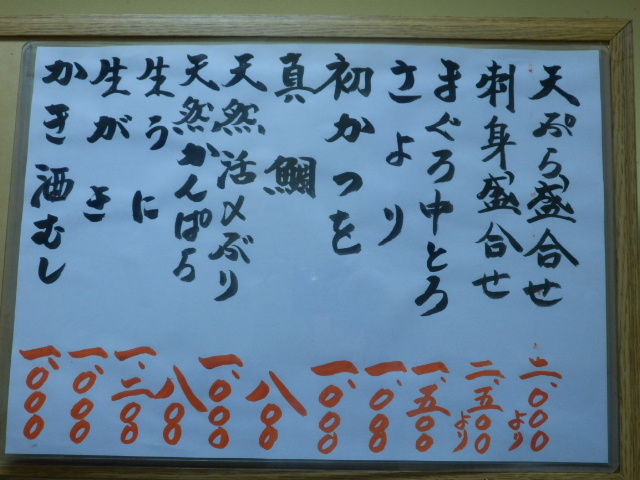 天ぷら盛合せ 二、〇〇〇より
刺身盛合せ 二、五〇〇より
まぐろ中とろ 一、五〇〇
さより 一、〇〇〇
初かつを 一、〇〇〇
真鯛 八〇〇
天然活〆ぶり 一、〇〇〇
天然かんぱち 八〇〇
生うに 一、二〇〇
生がき 一、〇〇〇
かき酒むし 一、〇〇〇